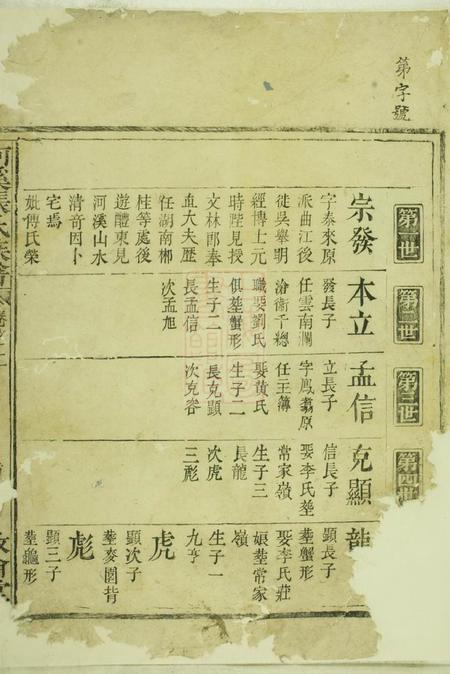 第字號
第一世
宗發
字泰來原
派曲江後
徙吳舉明
經博上元
時陞見授
文林郎奉
直大夫歷
任湖南郴
桂等處後
遊醴東見
河溪山水
清奇因卜
宅焉
妣傅氏榮
第二世
本立
發長子
任雲南瀾
滄衛千總
職娶劉氏
俱塟蟹形
生子二
長孟信
次孟旭
第三世
孟信
立長子
字鳳翥原
任主簿
娶黄氏
生子二
長克顯
次克容
第四世
克顯
信長子
娶李氏塟
常家嶺
生子三
長龍
次虎
三彪
龍
顯長子
塟蟹形
娶李氏莊
娘塟常家
嶺
生子一
九亨
虎
顯次子
塟麥園背
彪
顯三子
塟龜形